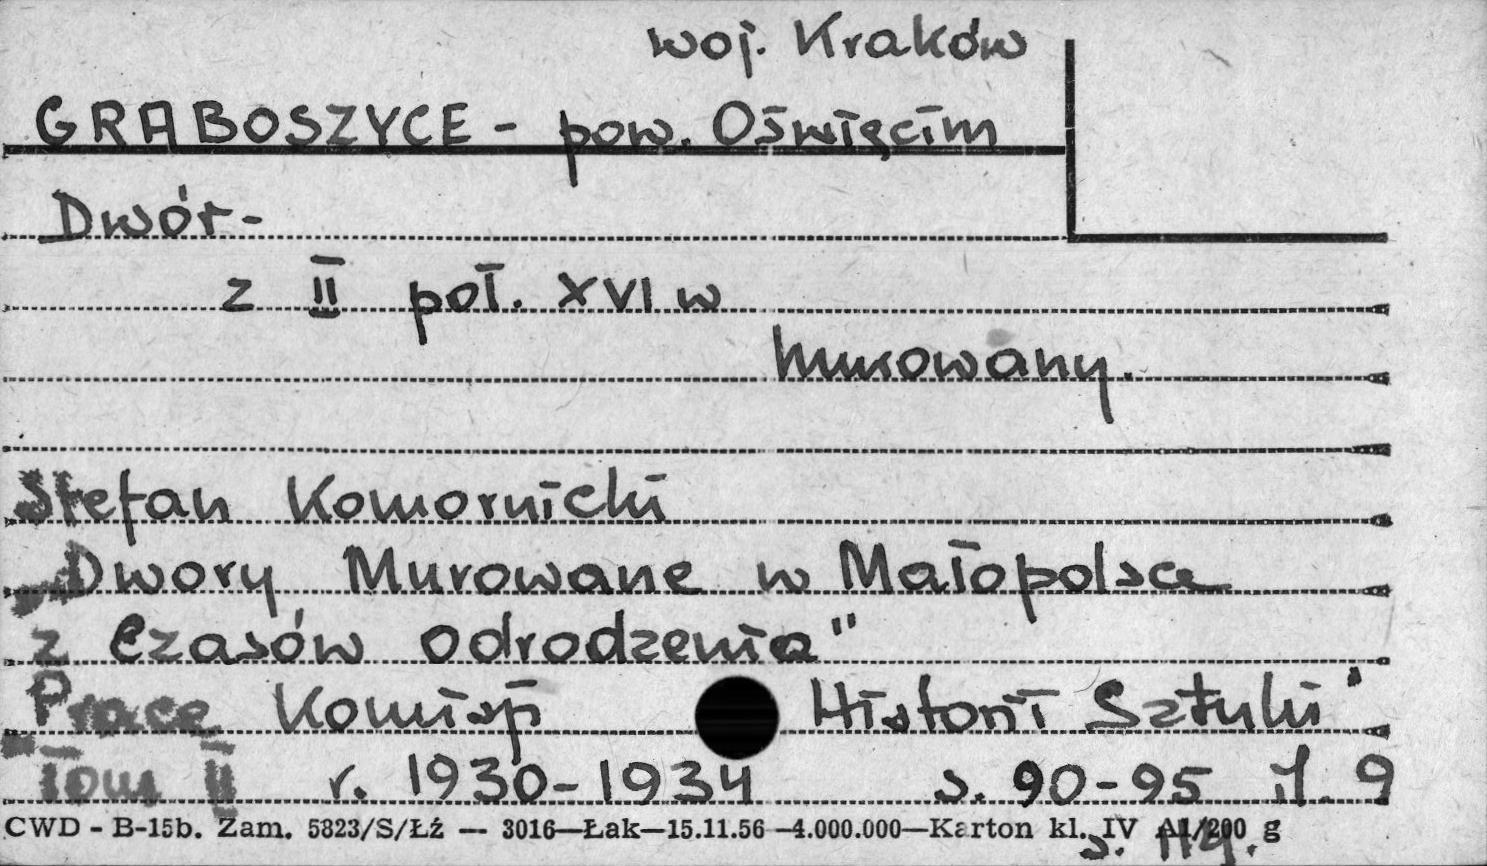 woj. Kraków
GRABOSZYCE - pow. Oświęcim
Dwór -
z II poł. XVI w
Murowany.
Stefan Komornicki
„Dwory Murowane w Małopolsce
z Czasów Odrodzenia"
Prace Komisji Historii Sztuki
Tom II r. 1930-1934 s. 90-95 il. 9
CWD - B-15b. Zam. 5823/S/Łź — 3016—Łak—15.11.56—4.000.000—Karton kl. IV A1/200 g